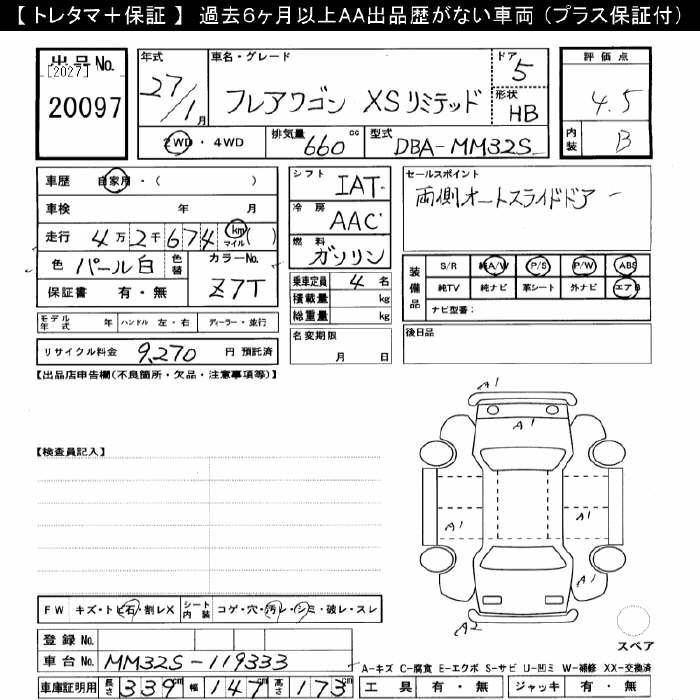 【 トレタマ＋保証 】 過去6ヶ月以上AA出品歴がない車両（プラス保証付）
出品号 No.
[2027]
20097
年式
27/1月
車名・グレード
フレアワゴン XSリミテッド
ドア
5
形状
HB
2WD ・ 4WD
排気量
660 cc
型式
DBA-MM32S
評価点
4.5
内装
B
車歴 自家用・( )
車検 年 月
走行 4万2千674 km マイル ( )
色 パール白 色替 カラーNo.
Z7T
保証書 有・無
モデル年式 年 ハンドル 左・右 ディーラー・並行
リサイクル料金 9,270 円 預託済
シフト
IAT
冷房
AAC
燃料
ガソリン
乗車定員 4 名
積載量 kg
総重量 kg
名変期限
月 日
セールスポイント
両側オートスライドドア
装備品
S/R 純A/W P/S P/W ABS
純TV 純ナビ 革シート 外ナビ エアB
ナビ型番：
後日品
【出品店申告欄(不良箇所・欠品・注意事項等)】
【検査員記入】
A1
A1
A1
A1
A1
A2
スペア
FW キズ・トビ石・割レX シート内装 コゲ・穴・汚レ・シミ・破レ・スレ
登録 No.
車台 No. MM32S-119333
A-キズ C-腐食 E-エクボ S-サビ U-凹ミ W-補修 XX-交換済
車庫証明用 長さ 339 cm 幅 147 cm 高さ 173 cm
工具 有・無 ジャッキ 有・無